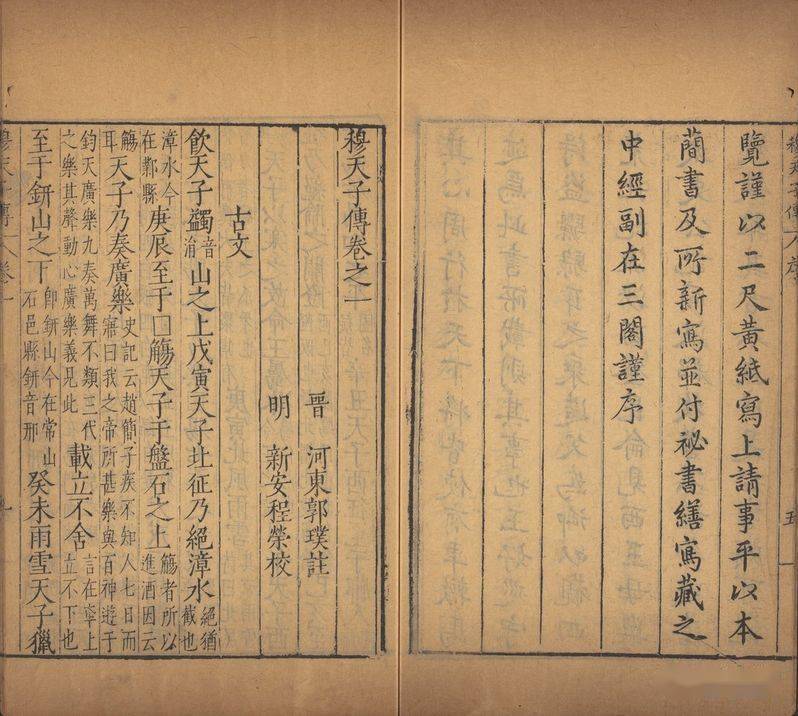 覽謹以二尺黃紙寫上請事平以本
簡書及所新寫並付祕書繕寫藏之
中經副在三閣謹序
穆天子傳卷之一
晉　河東郭璞註
明　新安程榮校
古文
飲天子蠲音涓山之上戊寅天子北征乃絕漳水絕猶截也
漳水今在鄴縣庚辰至于□觴天子于盤石之上觴者所以進酒因云
觴耳天子乃奏廣樂史記云趙簡子疾不知人七日而寤曰我之帝所甚樂與百神遊于
鈞天廣樂九奏萬舞不類三代之樂其聲動心廣樂義見此載立不舍言在車上立不下也
至于鈃山之下即鈃山今在常山石邑縣鈃音邢癸未雨雪天子獵
穆天子傳
卷一